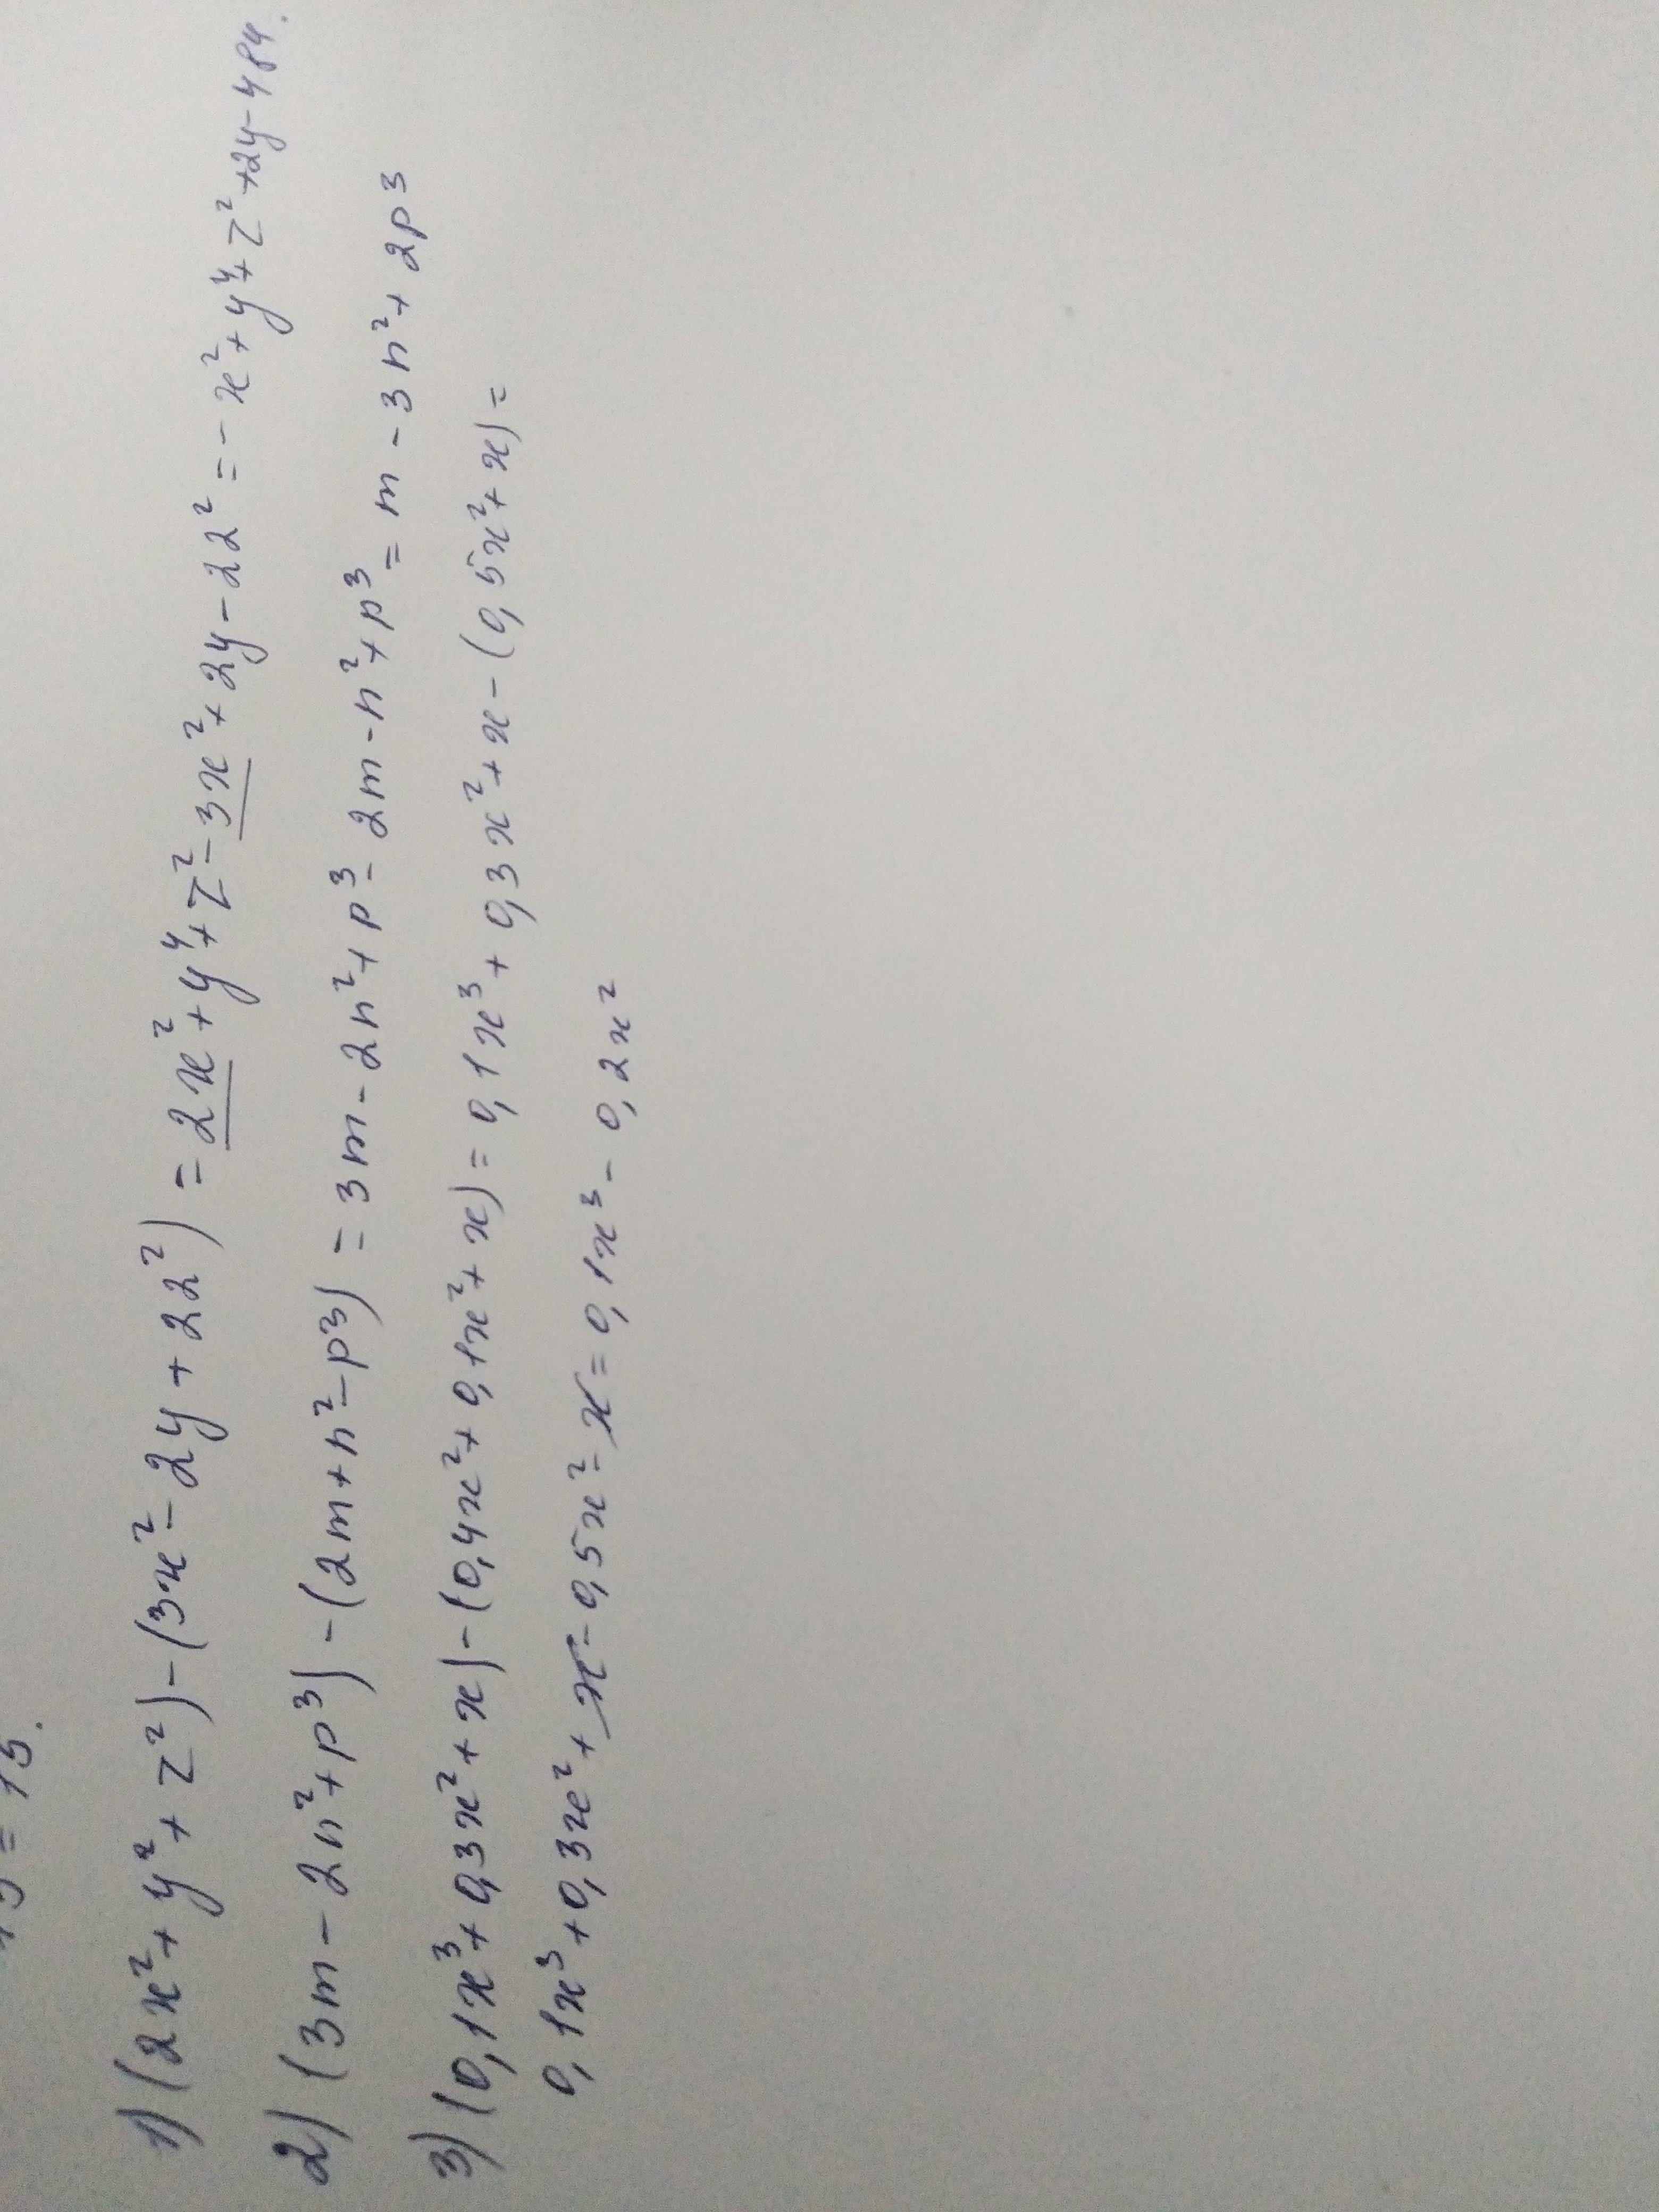 = 15.
1) (2x²+y²+z²)-(3x²-2y+22²) = 2x²+y⁴+z²-3x²+2y-22² = -x²+y⁴+z²+2y-484.
2) (3m-2n²+p³)-(2m+n²-p³) = 3m-2n²+p³-2m-n²+p³ = m-3n²+2p³
3) (0,1x³+0,3x²+x)-(0,4x²+0,1x²+x) = 0,1x³+0,3x²+x-(0,5x²+x) =
0,1x³+0,3x²+x-0,5x²-x = 0,1x³-0,2x²